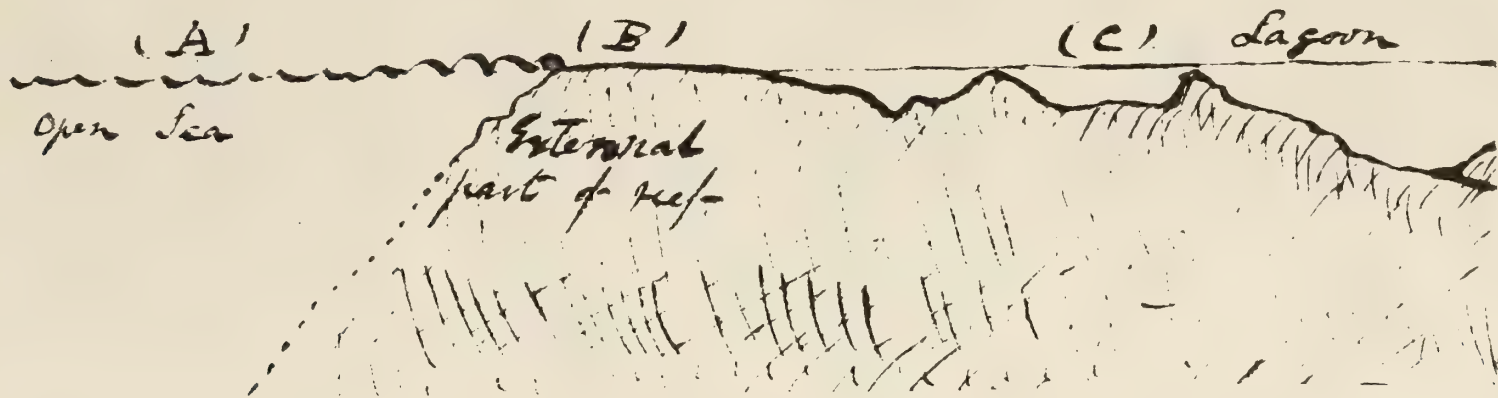 (A)
(B)
(C) Lagoon
Open Sea
External
part of reef